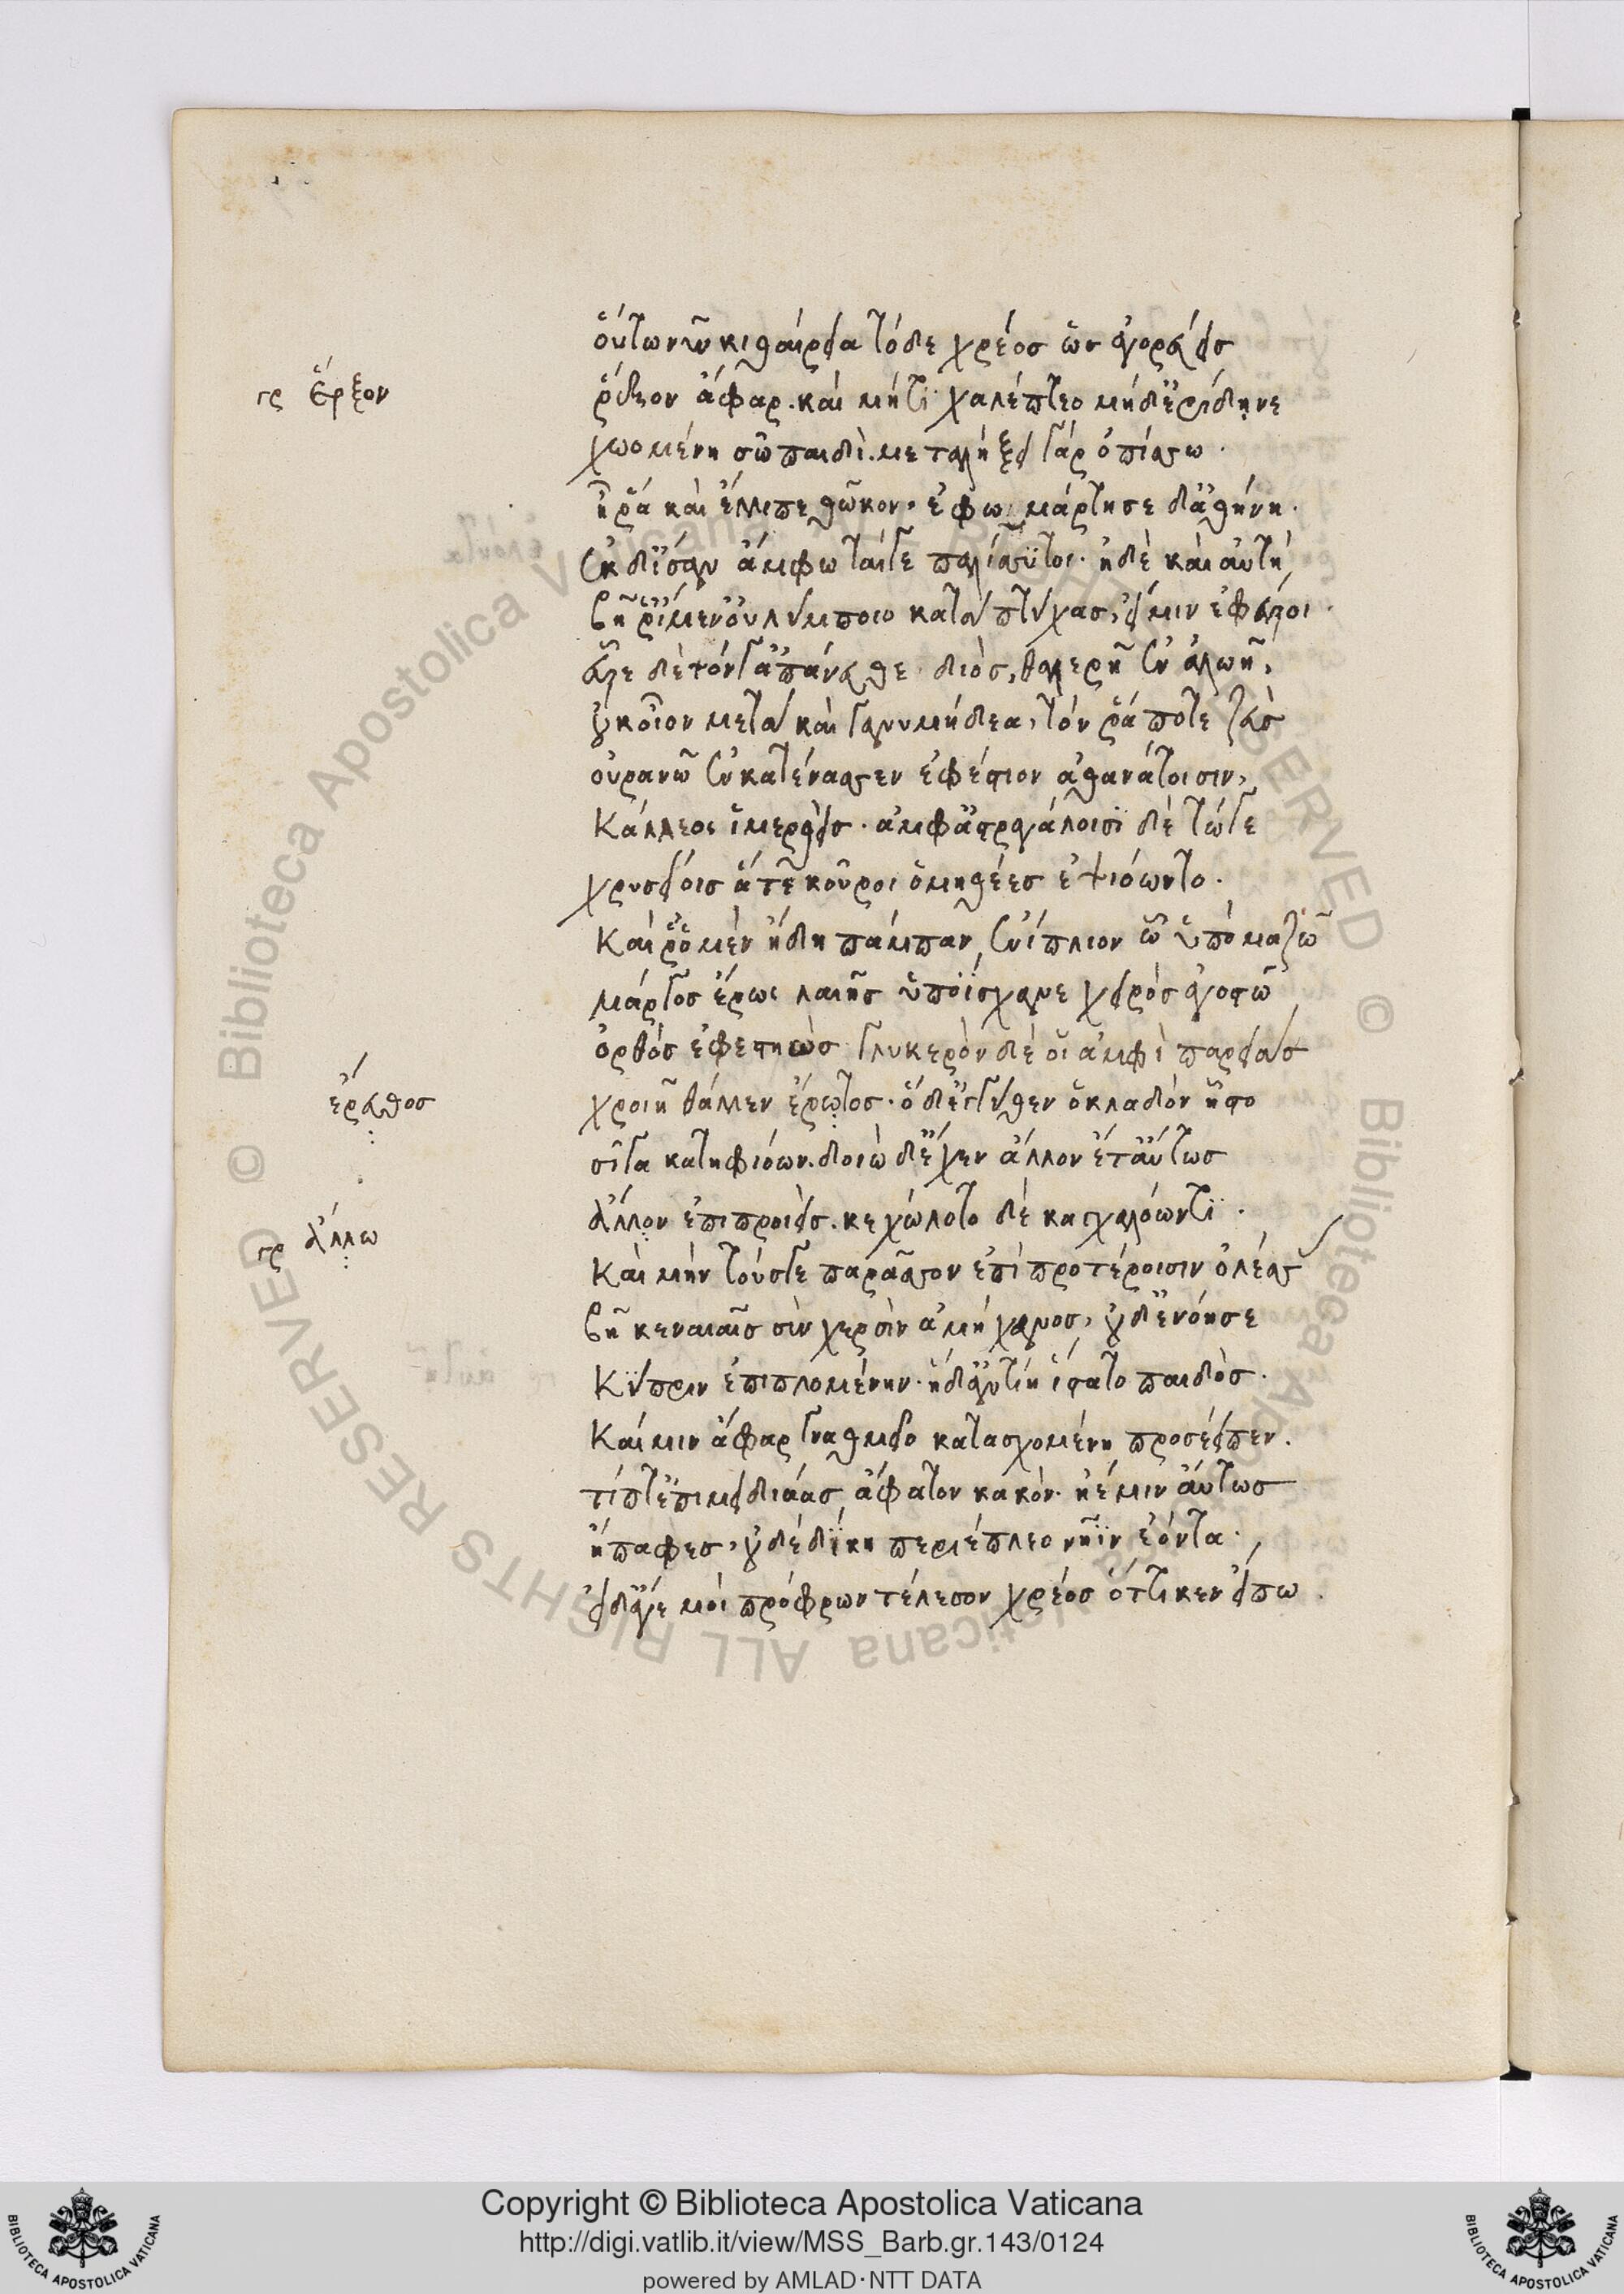 οὕτω νῦν κυθέρεια τόδε χρέος ὡς ἀγορεύεις
γρ ἔρξον
ῥέξον ἄφαρ. καὶ μήτι χαλέπτεο μήδ' ἐρίδηνε
χωομένη σῷ παιδί. μεταλήξει γὰρ ὀπίσσω.
ἦ ῥά καὶ ἔλλιπε θῶκον. ἐφωμάρτησε δ' ἀθήνη.
ἐκ δ' ἴσαν ἄμφω ταίγε παλίσσυτοι. ἡ δὲ καὶ αὐτή
βῆ ῥ' ἴμεν οὐλύμποιο κατὰ πτύχας, εἴ μιν ἐφεύροι.
εὗρε δὲ τόνγ' ἀπάνευθε διός, θαλερῇ ἐν ἀλωῇ,
οὐκ οἶον μετὰ καὶ γανυμήδεα, τόν ῥά ποτε ζεὺς
οὐρανῷ ἐγκατένασσεν ἐφέστιον ἀθανάτοισιν,
κάλλεος ἱμερθείς. ἀμφ' ἀστραγάλοισι δὲ τώγε
χρυσείοις ἅτε κοῦροι ὁμηθέες ἑψιόωντο.
καί ῥ' ὁ μὲν ἤδη πάμπαν ἐνίπλεον ᾧ ὑπὸ μαζῷ
μάργος ἔρως λαιῆς ὑποΐσχανε χειρὸς ἀγοστῷ
ὀρθὸς ἐφεστηώς. γλυκερὸν δέ οἱ ἀμφὶ παρειάς
ἔρευθος
χροιῇ θάλλεν ἔρωτος. ὁ δ' ἐγγύθεν ὀκλαδὸν ἧστο
σῖγα κατηφιόων. δοιὼ δ' ἔχεν ἄλλον ἔτ' αὔτως
γρ ἄλλω
ἄλλον ἐπιπροιείς. κεχόλωτο δὲ καγχαλόωντι.
καὶ μὴν τούσγε παρᾶσσον ἐπὶ προτέροισιν ὀλέσας
βῆ κενεαῖς σὺν χερσὶν ἀμήχανος, οὐδ' ἐνόησε
κύπριν ἐπιπλομένην. ἡ δ' ἀντίη ἵστατο παιδός.
καί μιν ἄφαρ γναθμοῖο κατασχομένη προσέειπεν.
τίπτ' ἐπιμειδιάας ἄφατον κακόν. ἠέ μιν αὔτως
ἤπαφες, οὐδὲ δίκῃ περιέπλεο νῆϊν ἐόντα.
εἰ δ' ἄγε μοι πρόφρων τέλεσον χρέος ὅττι κεν εἴπω.
© Biblioteca Apostolica Vaticana ALL RIGHTS RESERVED
© Biblioteca Apostolica Vaticana ALL RIGHTS RESERVED
Copyright © Biblioteca Apostolica Vaticana
http://digi.vatlib.it/view/MSS_Barb.gr.143/0124
powered by AMLAD·NTT DATA
BIBLIOTECA APOSTOLICA VATICANA
BIBLIOTECA APOSTOLICA VATICANA